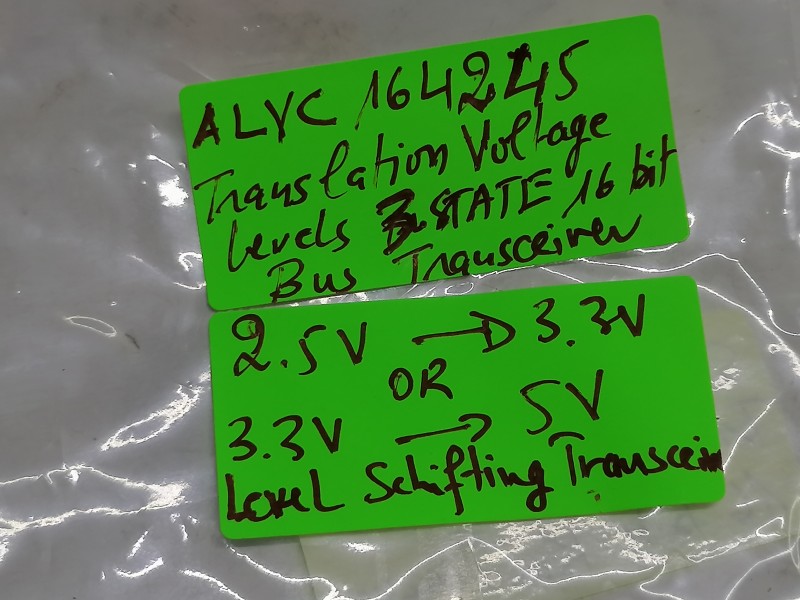 ALVC 164245
Translation Voltage
levels 3 STATE 16 bit
Bus Transceiver
2.5V → 3.3V
OR
3.3V → 5V
Level Schifting Transceiv